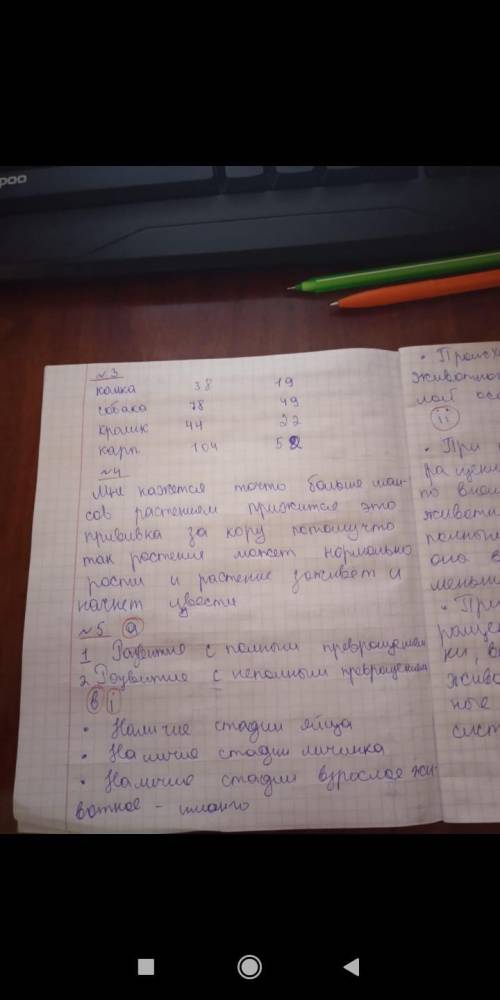 poo
№3
кошка 38 19
собака 78 49
кролик 44 22
карп 104 52
№4
Мне кажется точто больше шан-
сов растением прижится это
прививка за кору потомучто
так растения может нормально
рости и растение заживёт и
начнет цвести
№5 а
1 Развитие с полным превращением
2 Развитие с неполным превращением
в i
• Наличие стадии яйца
• Наличие стадии личинка
• Наличие стадии взрослое жи-
вотное - имаго
• Происх
животно
лой осо
ii
• При
ращени
то внеш
животн
полным
она в
меньш
• При
ращен
ки, в
живо
ные
сист